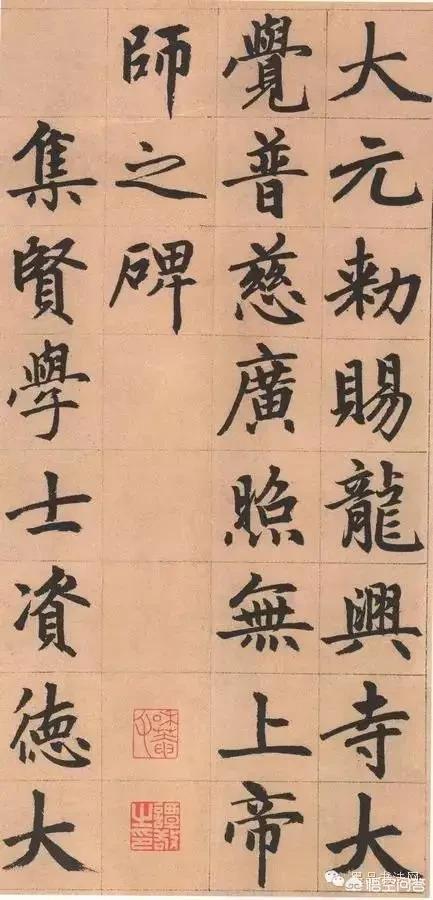 大元勑賜龍興寺大
覺普慈廣照無上帝
師之碑
集賢學士資德大
悟空问答